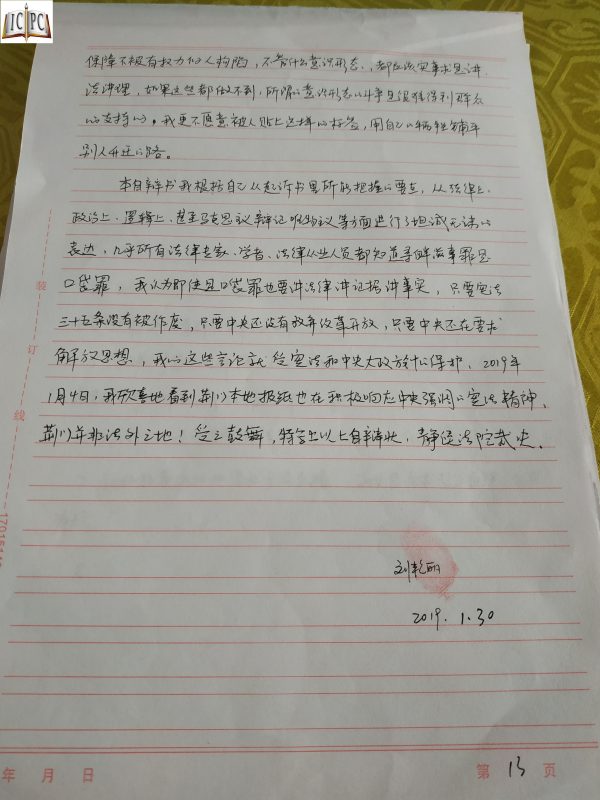 ICPC
保障不被有权力的人构陷，不管什么意识形态，都应该实事求是讲
法讲理，如果这些都做不到，所谓的意识形态的斗争是很难得到群众
的支持的。我更不愿意被人贴上这样的标签，用自己的牺牲铺平
别人升迁的路。
本自辩书我根据自己从起诉书里所能把握的要点，从法律上、
政治上、逻辑上、甚至马克思主义辩证唯物主义等方面进行了坦诚无讳的
表达，几乎所有法律专家、学者、法律从业人员都知道寻衅滋事罪是
口袋罪，我认为即使是口袋罪也要讲法律讲证据讲事实，只要宪法
三十五条没有被作废，只要中央还没有放弃改革开放，只要中央还在要求
解放思想，我的这些言论就受宪法和中央大政方针的保护。2019年
1月4日，我欣喜地看到荆门本地报纸也在积极响应中央强调的宪法精神，
荆门并非法外之地！受之鼓舞，特写出以上自辩状，静候法院裁决。
刘艳丽
2019.1.30
装
订
线
年 月 日
第 13 页